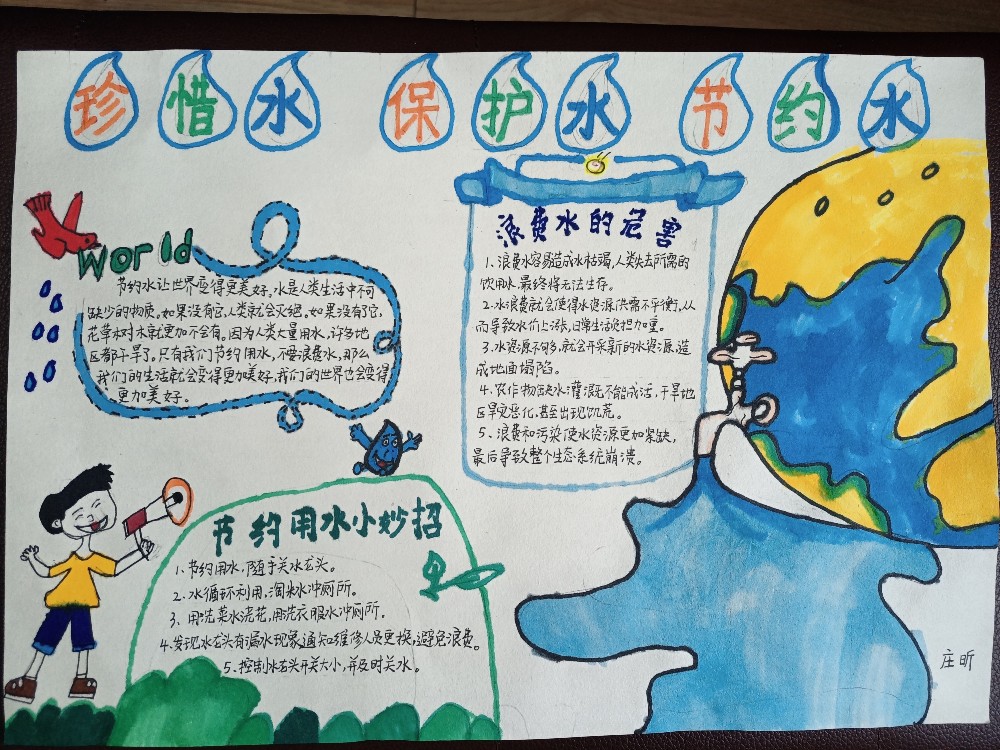 珍惜水 保护水 节约水
World
节约水让世界变得更美好。水是人类生活中不可
缺少的物质。如果没有它,人类就会灭绝。如果没有它,
花草树木就更加不会有。因为人类大量用水,许多地
区都干旱了。只有我们节约用水,不要浪费水,那么
我们的生活就会变得更加美好,我们的世界也会变得
更加美好。
浪费水的危害
1、浪费水容易造成水枯竭,人类失去所需的
饮用水,最终将无法生存。
2.水浪费就会使得水资源供需不平衡,从
而导致水价上涨,日常生活负担加重。
3.水资源不够多,就会开采新的水资源,造
成地面塌陷。
4、农作物缺水灌溉无不能成活,干旱地
区旱灾恶化,甚至出现饥荒。
5、浪费和污染使水资源更加紧缺,
最后导致整个生态系统崩溃。
节约用水小妙招
1、节约用水,随手关水龙头。
2、水循环利用,淘米水冲厕所。
3、用洗菜水浇花,用洗衣服水冲厕所。
4、发现水龙头有漏水现象通知维修人员更换,避免浪费。
5、控制水龙头开关大小,并及时关水。
庄昕